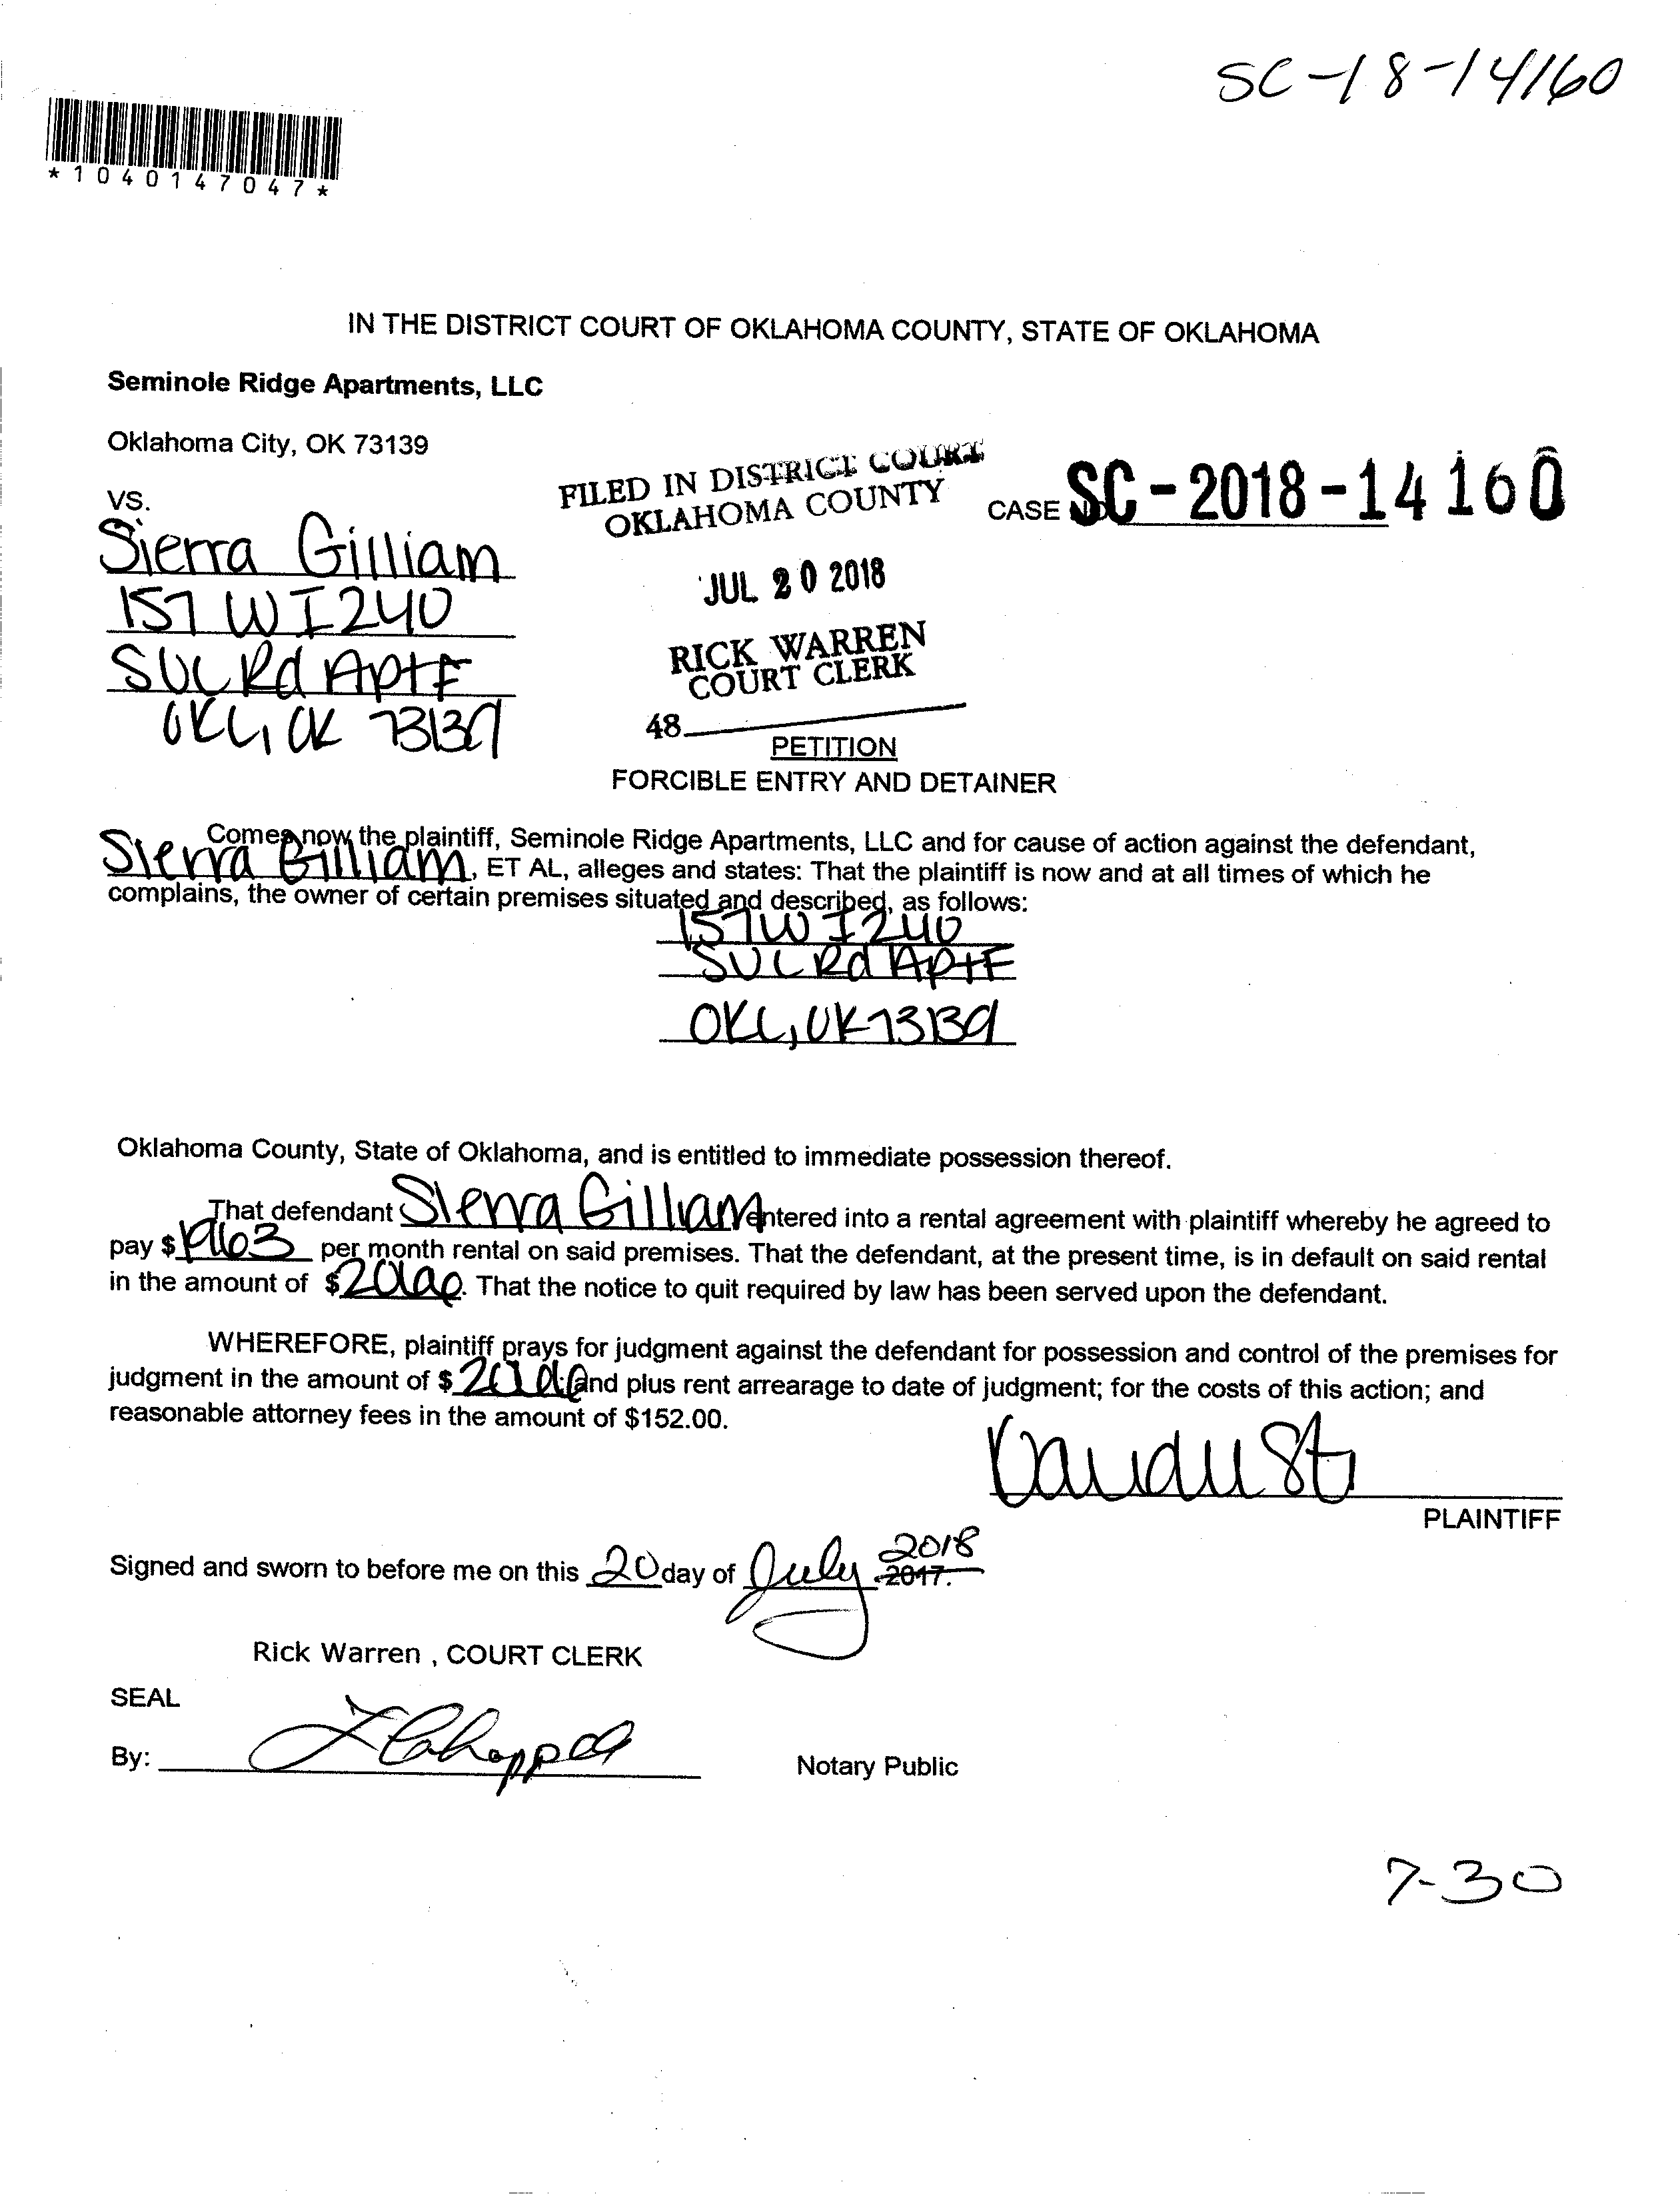 SC-18-14160
*1040147047*
IN THE DISTRICT COURT OF OKLAHOMA COUNTY, STATE OF OKLAHOMA
Seminole Ridge Apartments, LLC
Oklahoma City, OK 73139
VS.
FILED IN DISTRICT COURT
OKLAHOMA COUNTY
CASE NO. SC-2018-14160
Sierra Gilliam
157 W I240
SVC Rd Apt F
OKC, OK 73139
JUL 20 2018
RICK WARREN
COURT CLERK
48
PETITION
FORCIBLE ENTRY AND DETAINER
Comes now the plaintiff, Seminole Ridge Apartments, LLC and for cause of action against the defendant,
Sierra Gilliam, ET AL, alleges and states: That the plaintiff is now and at all times of which he
complains, the owner of certain premises situated and described, as follows:
157 W I240
SVC Rd Apt F
OKC, OK 73139
Oklahoma County, State of Oklahoma, and is entitled to immediate possession thereof.
That defendant Sierra Gilliam entered into a rental agreement with plaintiff whereby he agreed to
pay $ per month rental on said premises. That the defendant, at the present time, is in default on said rental
in the amount of $ . That the notice to quit required by law has been served upon the defendant.
WHEREFORE, plaintiff prays for judgment against the defendant for possession and control of the premises for
judgment in the amount of $ and plus rent arrearage to date of judgment; for the costs of this action; and
reasonable attorney fees in the amount of $152.00.
PLAINTIFF
Signed and sworn to before me on this 20 day of July 2018 2017.
Rick Warren , COURT CLERK
SEAL
By:
Notary Public
7-30